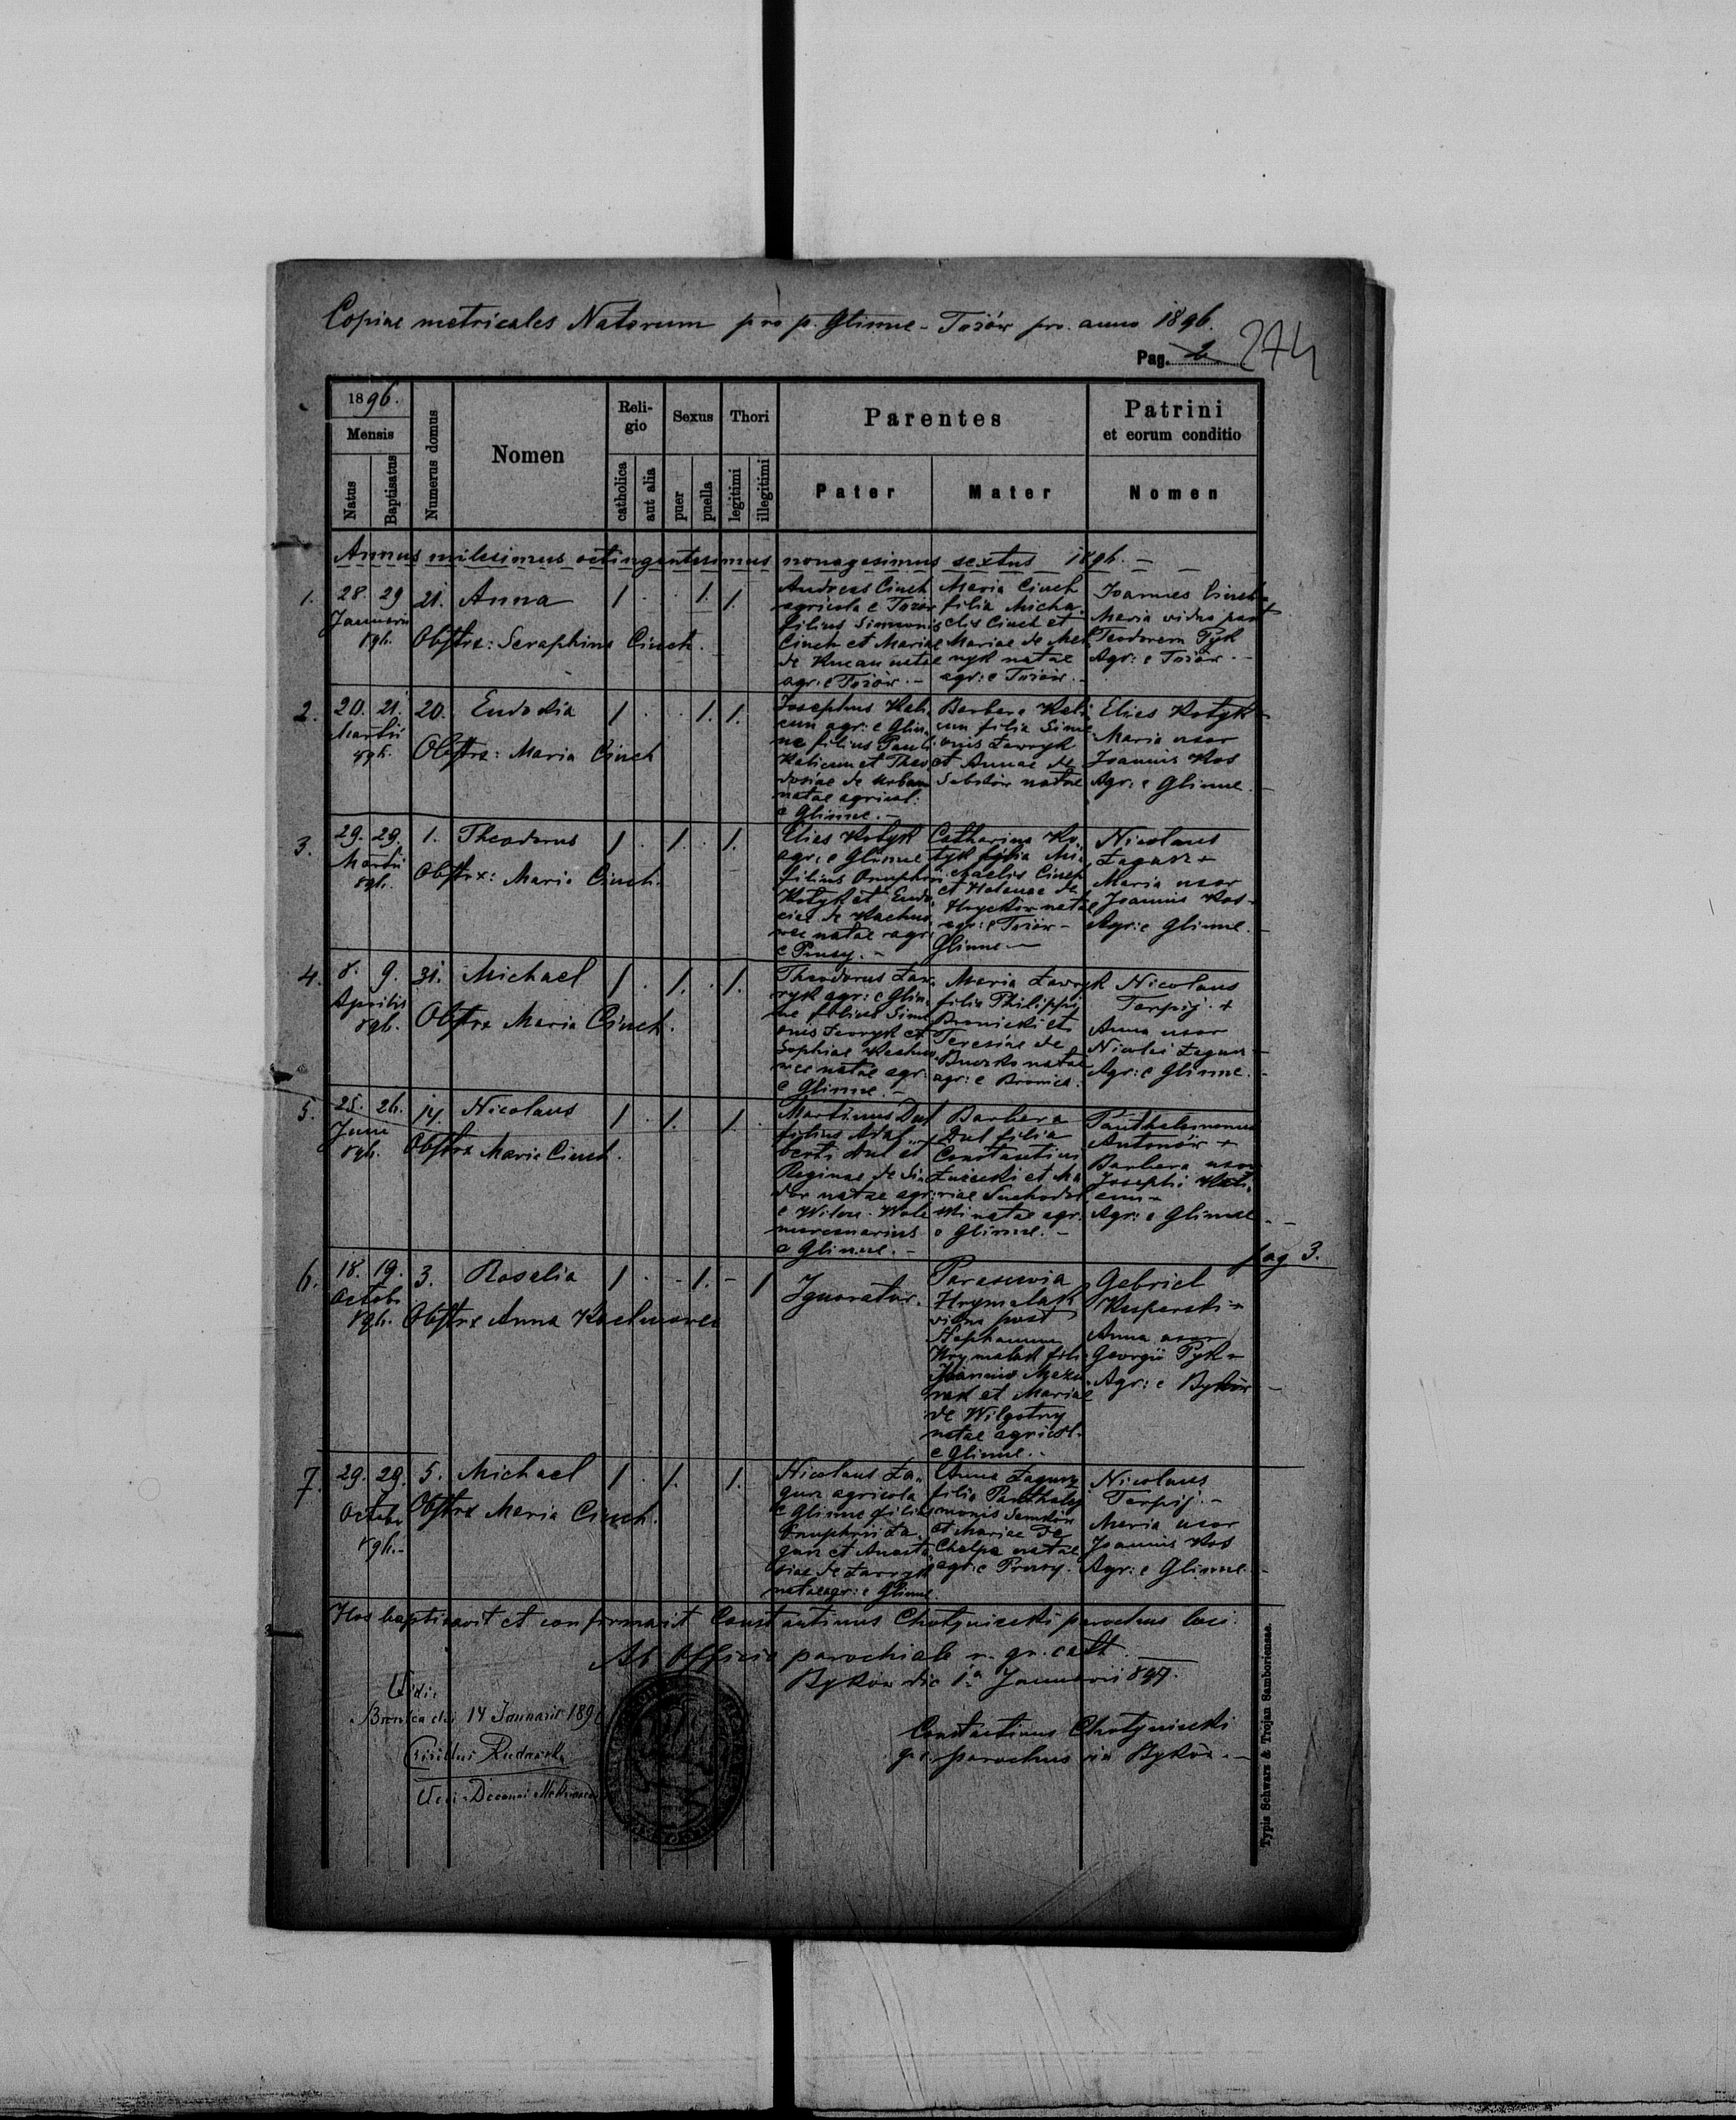 Copiae metricales Natorum pro p. Glinne - Tożór pro anno 1896.
Pag. 2 274
1896.
Mensis
Natus
Baptisatus
Numerus domus
Nomen
Reli-
gio
catholica
aut alia
Sexus
puer
puella
Thori
legitimi
illegitimi
Parentes
Pater
Mater
Patrini
et eorum conditio
Nomen
Annus milesimus octingentesimus nonagesimus sextus 1896. -
1. 28. 29 21. Anna 1 . . 1. 1.
Januarii
896.
Obstrx: Seraphina Cinch.
Andreas Cinch
agricola e Tożór
filius Simeonis
Cinch et Mariae
de natae
agr: e Tożór. -
Maria Cinch
filia Micha-
elis Cinch et
Mariae de Mel
nyk natae
agr: e Tożór. -
Joannes Cinch
Maria vidua post
Teodorem Pyk
Agr: e Tożór. -
2. 20. 21. 20. Eudoxia 1 . . 1. 1.
Martii
896.
Obstrx: Maria Cinch
Josephus Kali
cun agr: e Glin
ne filius Pauli
Kalicun et Theo
dosiae de Urban
natae agricol:
e Glinne. -
Barbara Kali
cun filia Sime
onis Ławryk
et Annae de
natae
Elias Kotyk
Maria uxor
Joannis Kos
Agr: e Glinne. -
3. 29. 29. 1. Theodorus 1 . 1. . 1.
Martii
896.
Obstrx: Maria Cinch.
Elias Kotyk
agr: e Glinne
filius Onuphrii
Kotyk et Eudo
ciae de Kachno
wec natae agr:
e Prusy. -
Catharina Ko
tyk filia Mi
chaelis Cinch
et Helenae de
Hryckiw natae
agr: e Tożór -
Glinne. -
Nicolaus
Łagusz +
Maria uxor
Joannis Kos -
Agr: e Glinne. -
4. 8. 9. 31. Michael 1 . 1. . 1.
Aprilis
896.
Obstrx Maria Cinch.
Theodorus Ław
ryk agr: e Glin
ne filius Sime
onis Ławryk et
Sophiae Kachno
wec natae agr:
e Glinne. -
Maria Ławryk
filia Philippi
Bronicki et
Teresiae de
natae
agr: e Bronica.
Nicolaus
Terpij. +
Anna uxor
Nicolai Łagusz -
Agr: e Glinne. -
5. 25. 26. 14. Nicolaus 1 . 1. 1.
Junii
896.
Obstrx Maria Cinch.
Martinus Dul
filius Adal
berti Dul et
Reginae de
natae agr:
e
mercenarius
e Glinne. -
Barbara
Dul filia
Constantini
et Ma
riae Suchodol
ski natae agr:
e Glinne. -
Panthaleimonus
Antonów +
Barbara uxor
Josephi Kali
cun -
Agr: e Glinne - -
pag 3.
6. 18. 19. 3. Rosalia 1 . - 1. - 1
Octobr
896.
Obstrx Anna Kachnowec
Ignoratur.
Parascevia
Hrymalak
vidua post
Stephanum
Hrymalak filia
Joannis
et Mariae
de Wilgotny
natae agricol.
e Glinne. -
Gabriel
Kasparski +
Anna uxor
Georgii Pyk -
Agr: e Byków -
7. 29. 29. 5. Michael 1 . 1. 1.
Octobr
896. -
Obstrx Maria Cinch.
Nicolaus Ła
gusz agricola
e Glinne filius
Onuphrii Ła
gusz et Anasta
siae de Ławryk
natae agr: e Glinne.
Anna Łagusz
filia Panthalej
monis
et Mariae de
Chalpa natae
agr: e Prusy.
Nicolaus
Terpij. -
Maria uxor
Joannis Kos
Agr: e Glinne. -
Hos baptisavit et confirmavit Constantinus Chotyniecki parochus loci.
Ab Officio parochiale r. gr. cath.
Byków die 1a Januarii 1897.
Constantinus Chotyniecki
gr. parochus in Byków. -
Vidi:
Bronica die 14 Januarii 189
Typis Schwarz & Trojan Samboriensae.